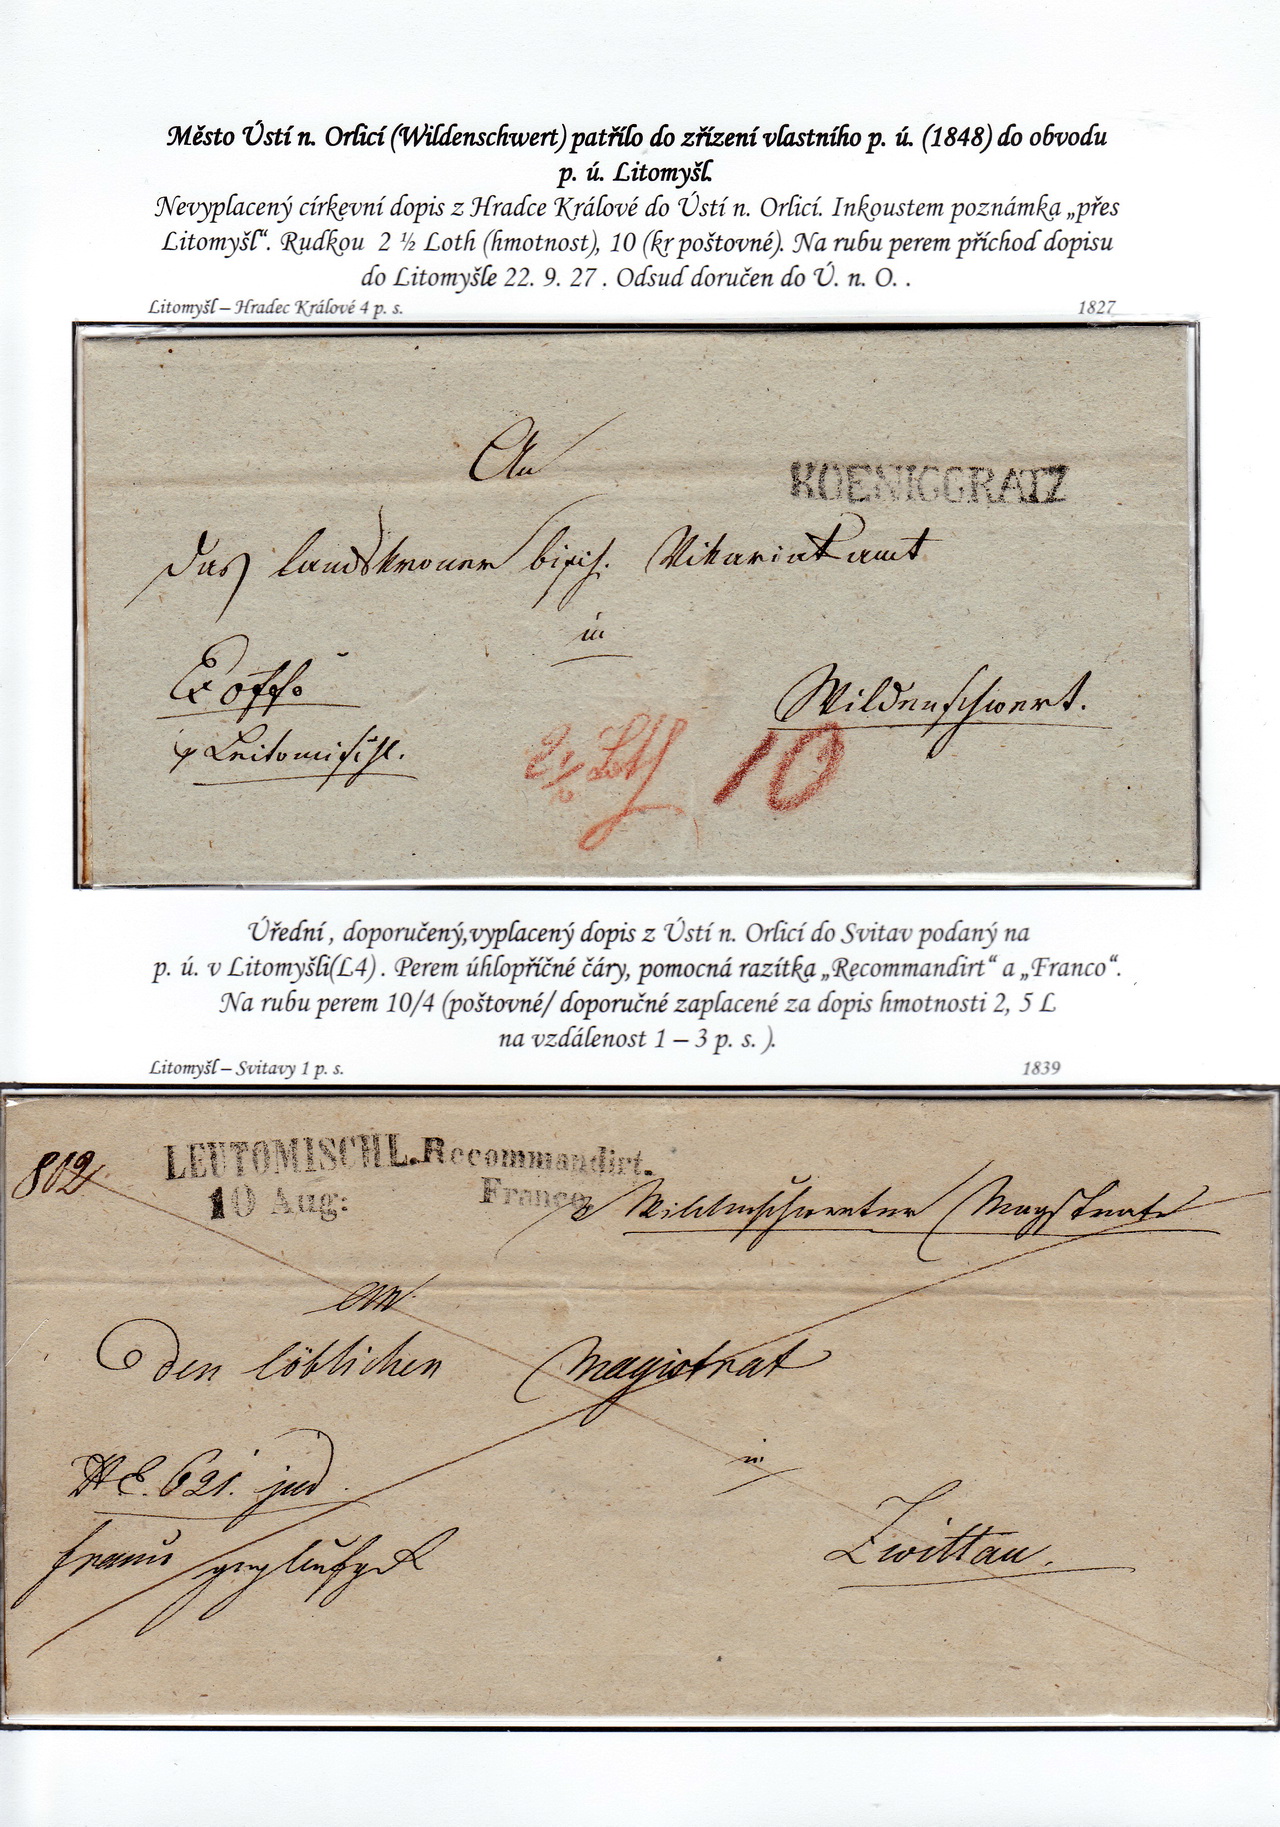 Město Ústí n. Orlicí (Wildenschwert) patřilo do zřízení vlastního p. ú. (1848) do obvodu
p. ú. Litomyšl.
Nevyplacený církevní dopis z Hradce Králové do Ústí n. Orlicí. Inkoustem poznámka „přes
Litomyšl“. Rudkou 2 ½ Loth (hmotnost), 10 (kr poštovné). Na rubu perem příchod dopisu
do Litomyšle 22. 9. 27 . Odsud doručen do Ú. n. O. .
Litomyšl – Hradec Králové 4 p. s. 1827
An
KOENIGGRATZ
das Landskroner bisch. Vikariatamt
in
Ex offo
Wildenschwert.
p Leitomischl.
2 1/2 Loth 10
Úřední , doporučený,vyplacený dopis z Ústí n. Orlicí do Svitav podaný na
p. ú. v Litomyšli(L4) . Perem úhlopříčné čáry, pomocná razítka „Recommandirt“ a „Franco“.
Na rubu perem 10/4 (poštovné/ doporučné zaplacené za dopis hmotnosti 2, 5 L
na vzdálenost 1 – 3 p. s. ).
Litomyšl – Svitavy 1 p. s. 1839
802
LEUTOMISCHL. Recommandirt.
10 Aug: Franco
Wildenschwerter Magistrate
An
den löblichen Magistrat
in
621. jud.
Zwittau.
franco